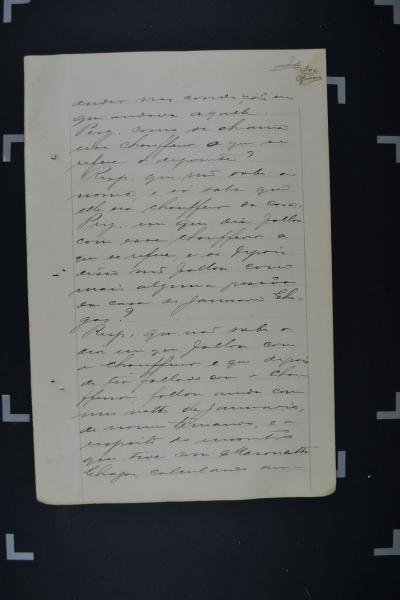 andar nas condições em
que andava aquele.
Perg. como se chama
esse chauffeur a que se
refere o depoente?
Resp. que não sabe o
nome, e só sabe que
elle era chauffeur da casa.
Perg. em que dia fallou
com esse chauffeur a
que se refere, e se depois
disso não fallou com
mais alguma pessôa
da casa de Januario Cha-
gas?
Resp. que não sabe o
dia em que fallou com
o chauffeur e que depois
de ter fallado com o chau-
ffeur fallou ainda com
um neto de Januario,
de nome Fernando, e a
respeito de encontros
que teve com
Chagas, calculando am-